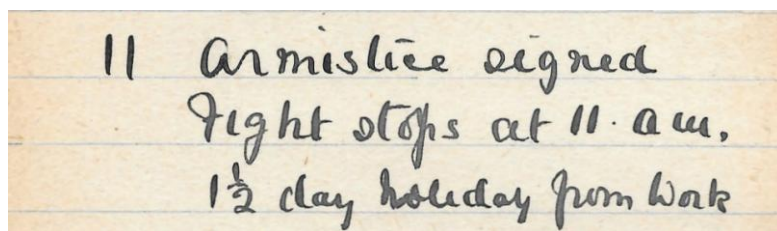 11 Armistice signed
Fight stops at 11. a.m.
1½ day holiday from work